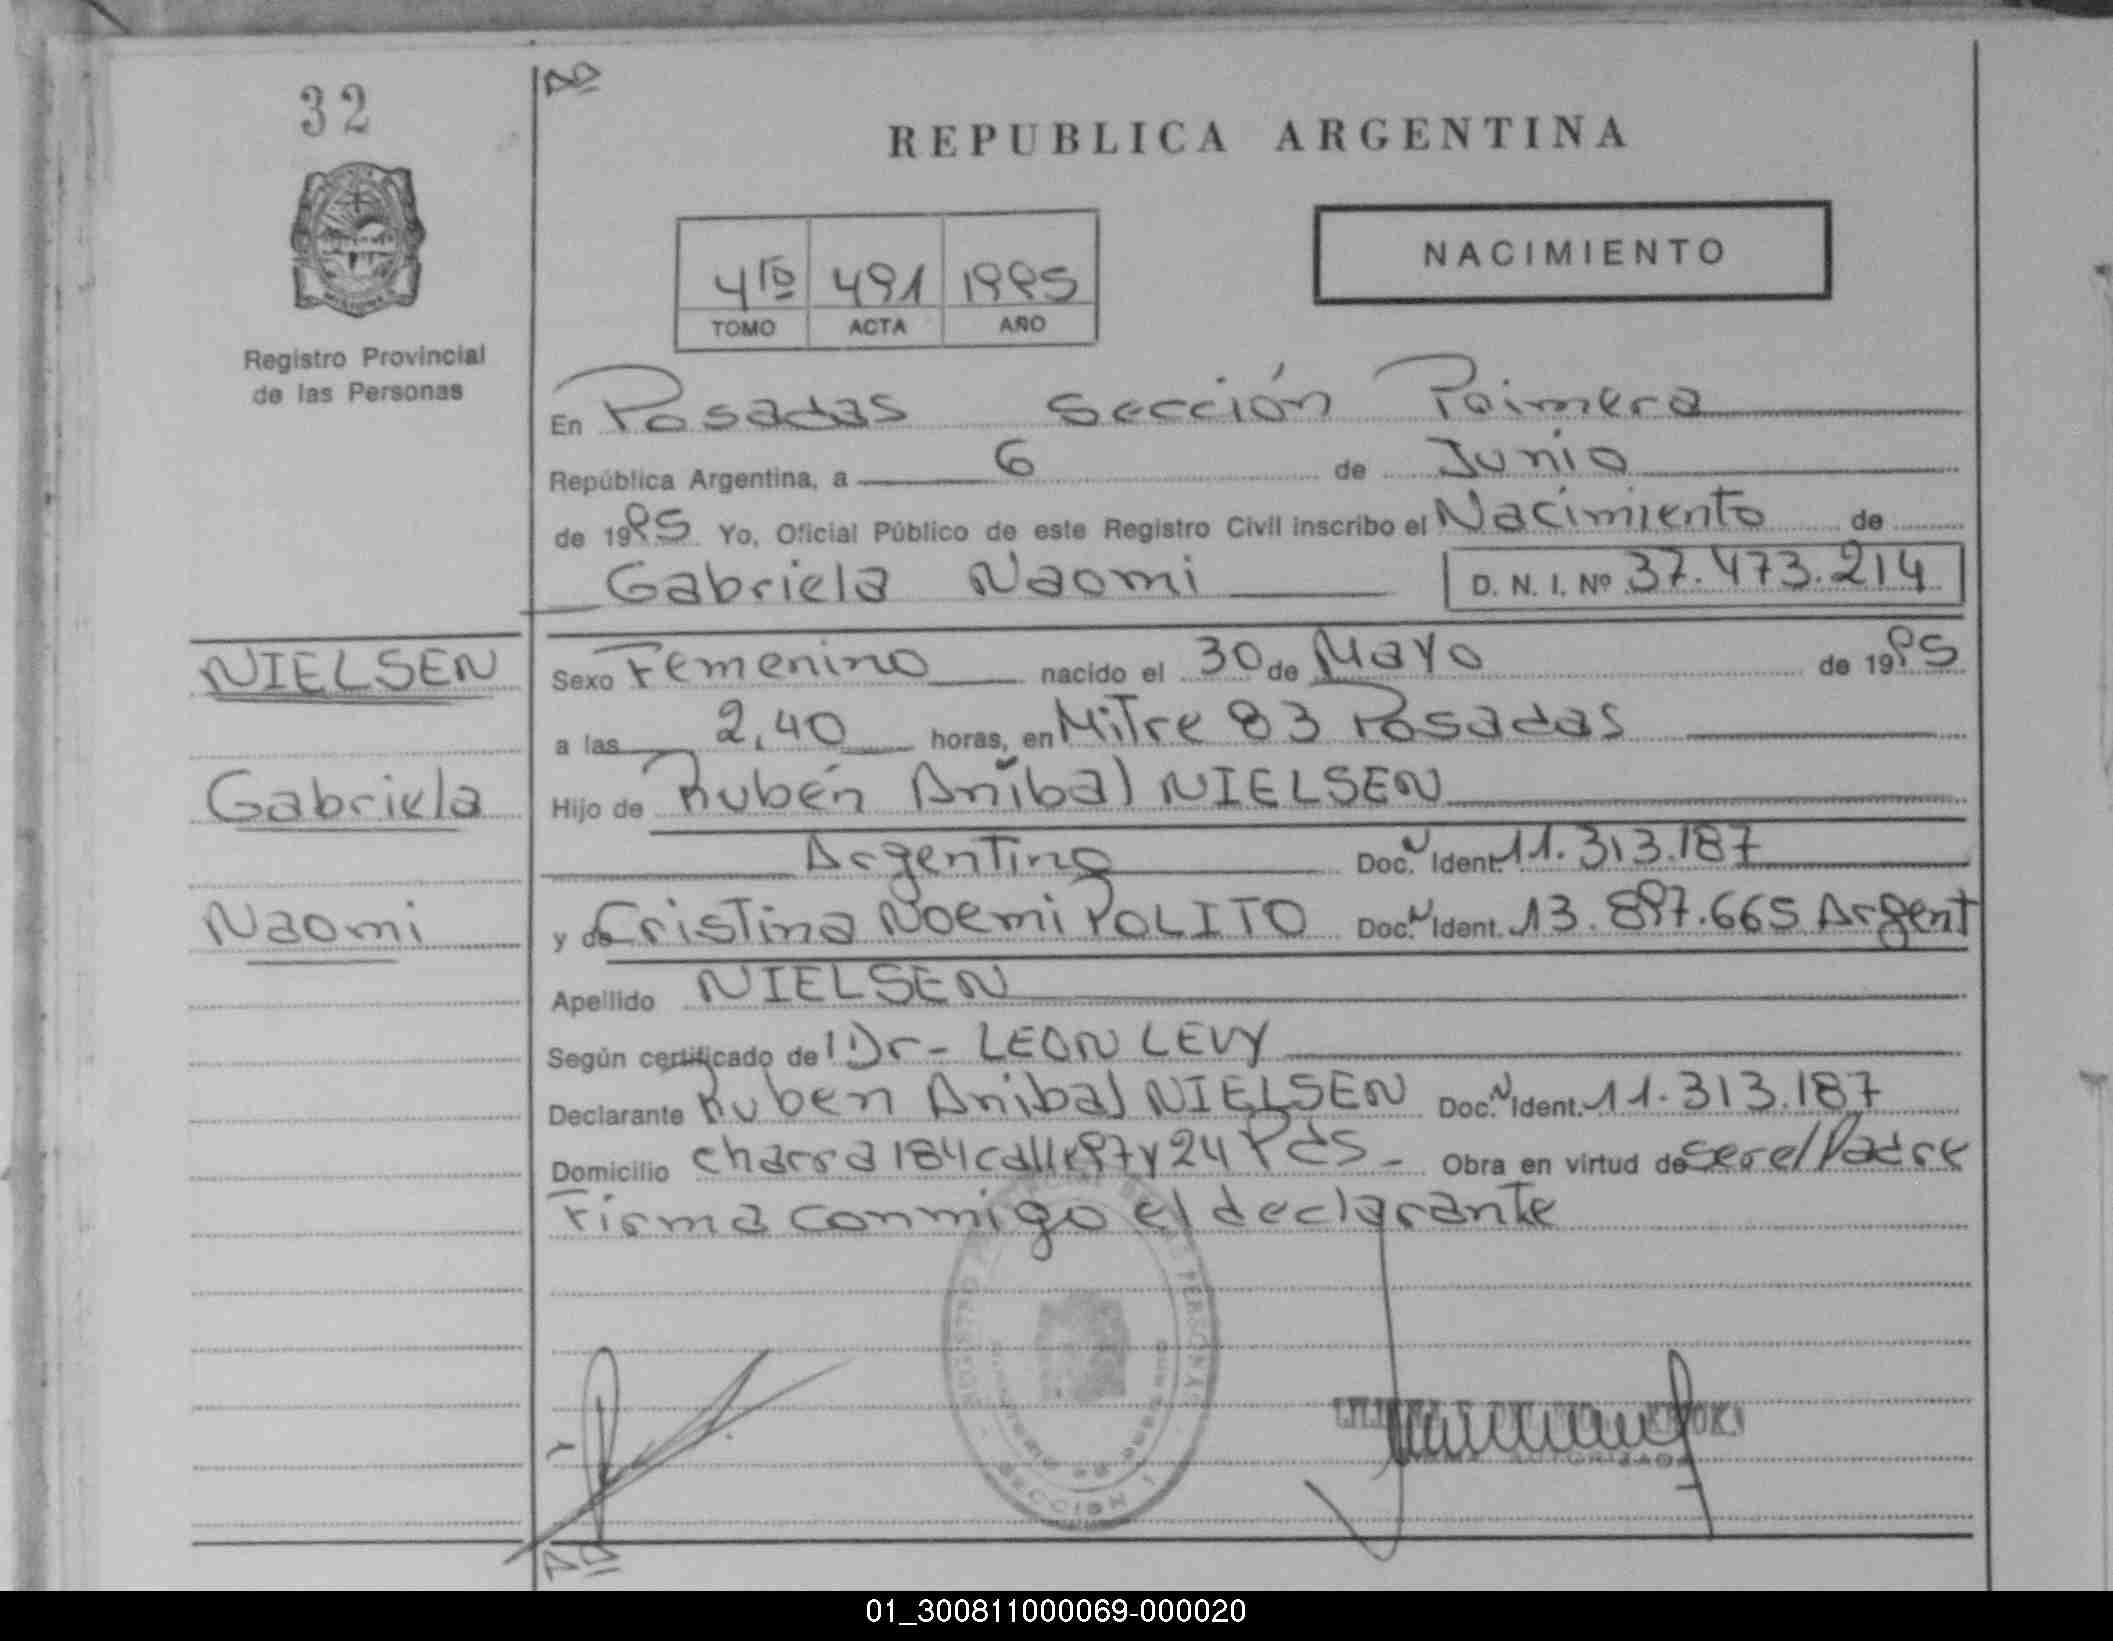 32
REPUBLICA ARGENTINA
NACIMIENTO
4to 491 1995
TOMO ACTA AÑO
Registro Provincial
de las Personas
En Posadas Sección Primera
República Argentina, a 6 de Junio
de 1995 Yo, Oficial Público de este Registro Civil inscribo el Nacimiento de
Gabriela Naomi D. N. I. Nº 37.473.214
NIELSEN
Sexo Femenino nacido el 30 de Mayo de 1995
a las 2,40 horas, en Mitre 83 Posadas
Gabriela
Hijo de Rubén Aníbal NIELSEN
Argentino Doc. N Ident. 11.313.187
Naomi
y de Cristina Noemi POLITO Doc. N Ident. 13.897.665 Argent
Apellido NIELSEN
Según certificado de Dr- LEON LEVY
Declarante Ruben Anibal NIELSEN Doc. N Ident. 11.313.187
Domicilio chacra 184 calle 97 y 24 Pds - Obra en virtud de ser el Padre
Firma conmigo el declarante
SECCION 1
01_300811000069-000020